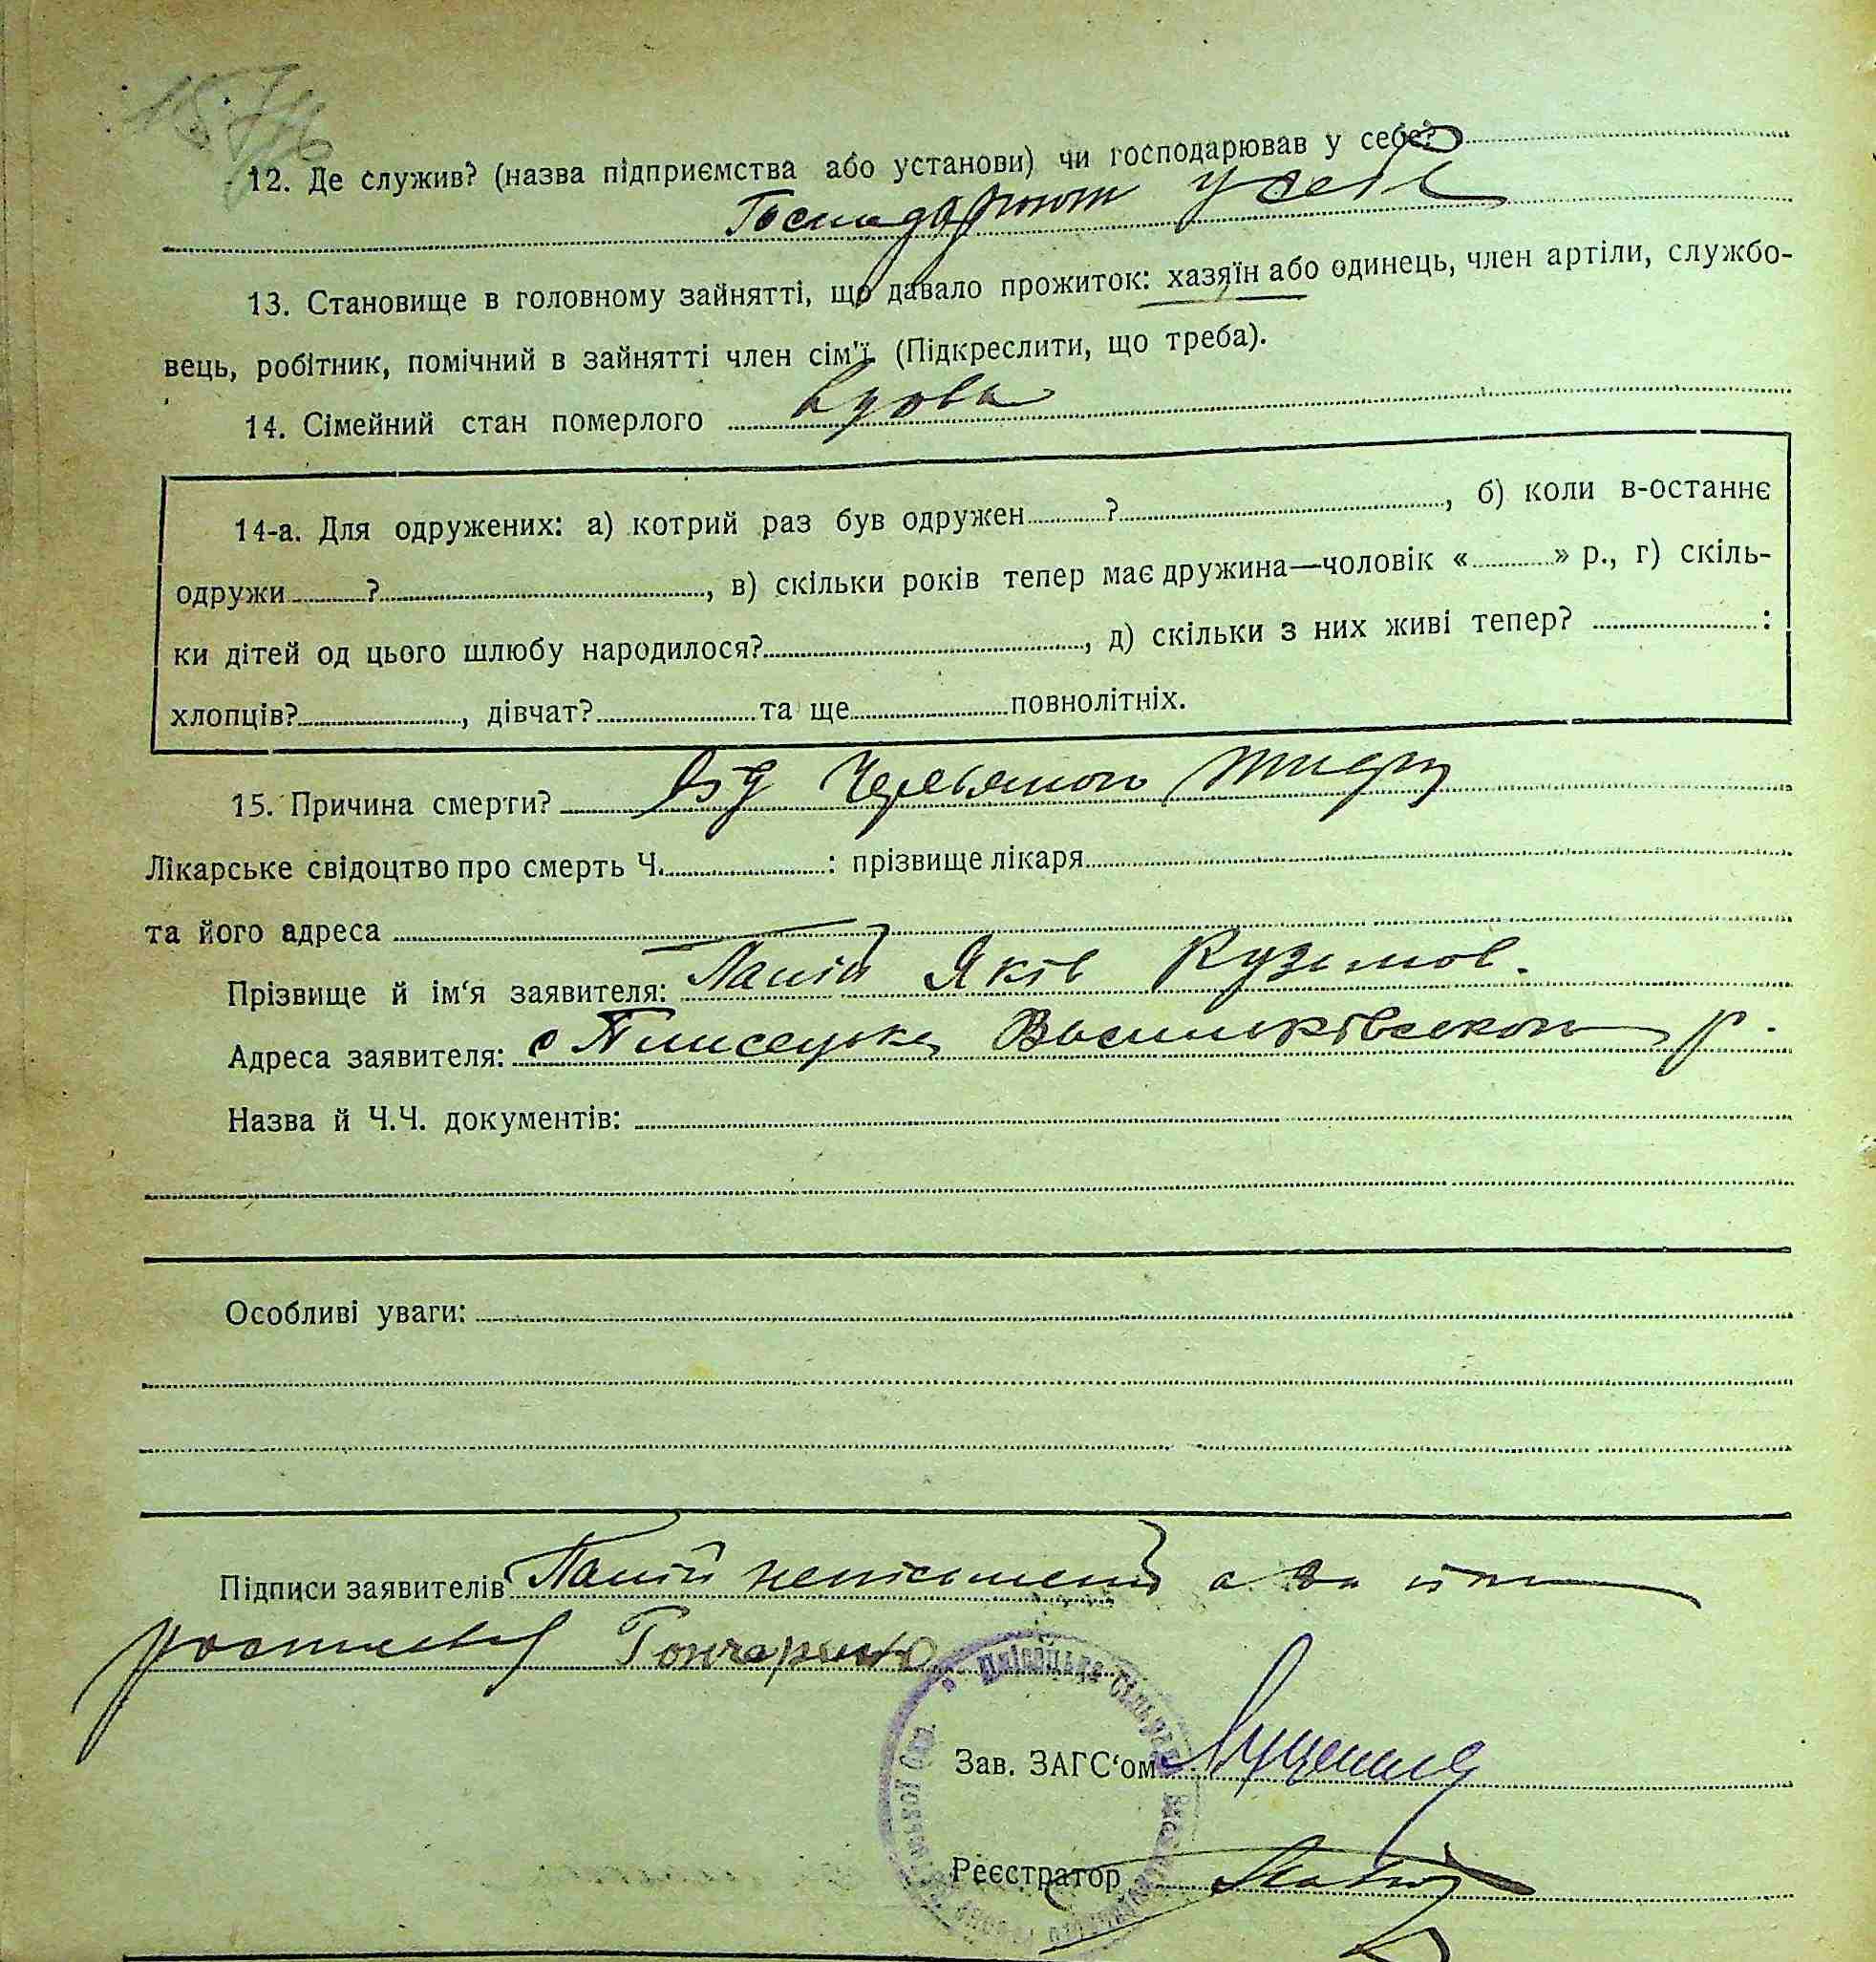 12. Де служив? (назва підприємства або установи) чи господарював у себе?
у себе
13. Становище в головному зайнятті, що давало прожиток: хазяїн або одинець, член артіли, службо-
вець, робітник, помічний в зайнятті член сім'ї. (Підкреслити, що треба).
14. Сімейний стан померлого Вдова
14-а. Для одружених: а) котрий раз був одружен ? , б) коли в-останнє
одружи ? , в) скільки років тепер має дружина—чоловік « » р., г) скіль-
ки дітей од цього шлюбу народилося? , д) скільки з них живі тепер? :
хлопців? , дівчат? та ще повнолітніх.
15. Причина смерти? Від Черевяного тифу
Лікарське свідоцтво про смерть Ч. : прізвище лікаря
та його адреса
Прізвище й ім'я заявителя: Яків Кузьмов.
Адреса заявителя: с Плисецьке Васильківського р.
Назва й Ч.Ч. документів:
Особливі уваги:
Підписи заявителів неписьмений а за
росписався Гончаренко
Зав. ЗАГС'ом
Реєстратор